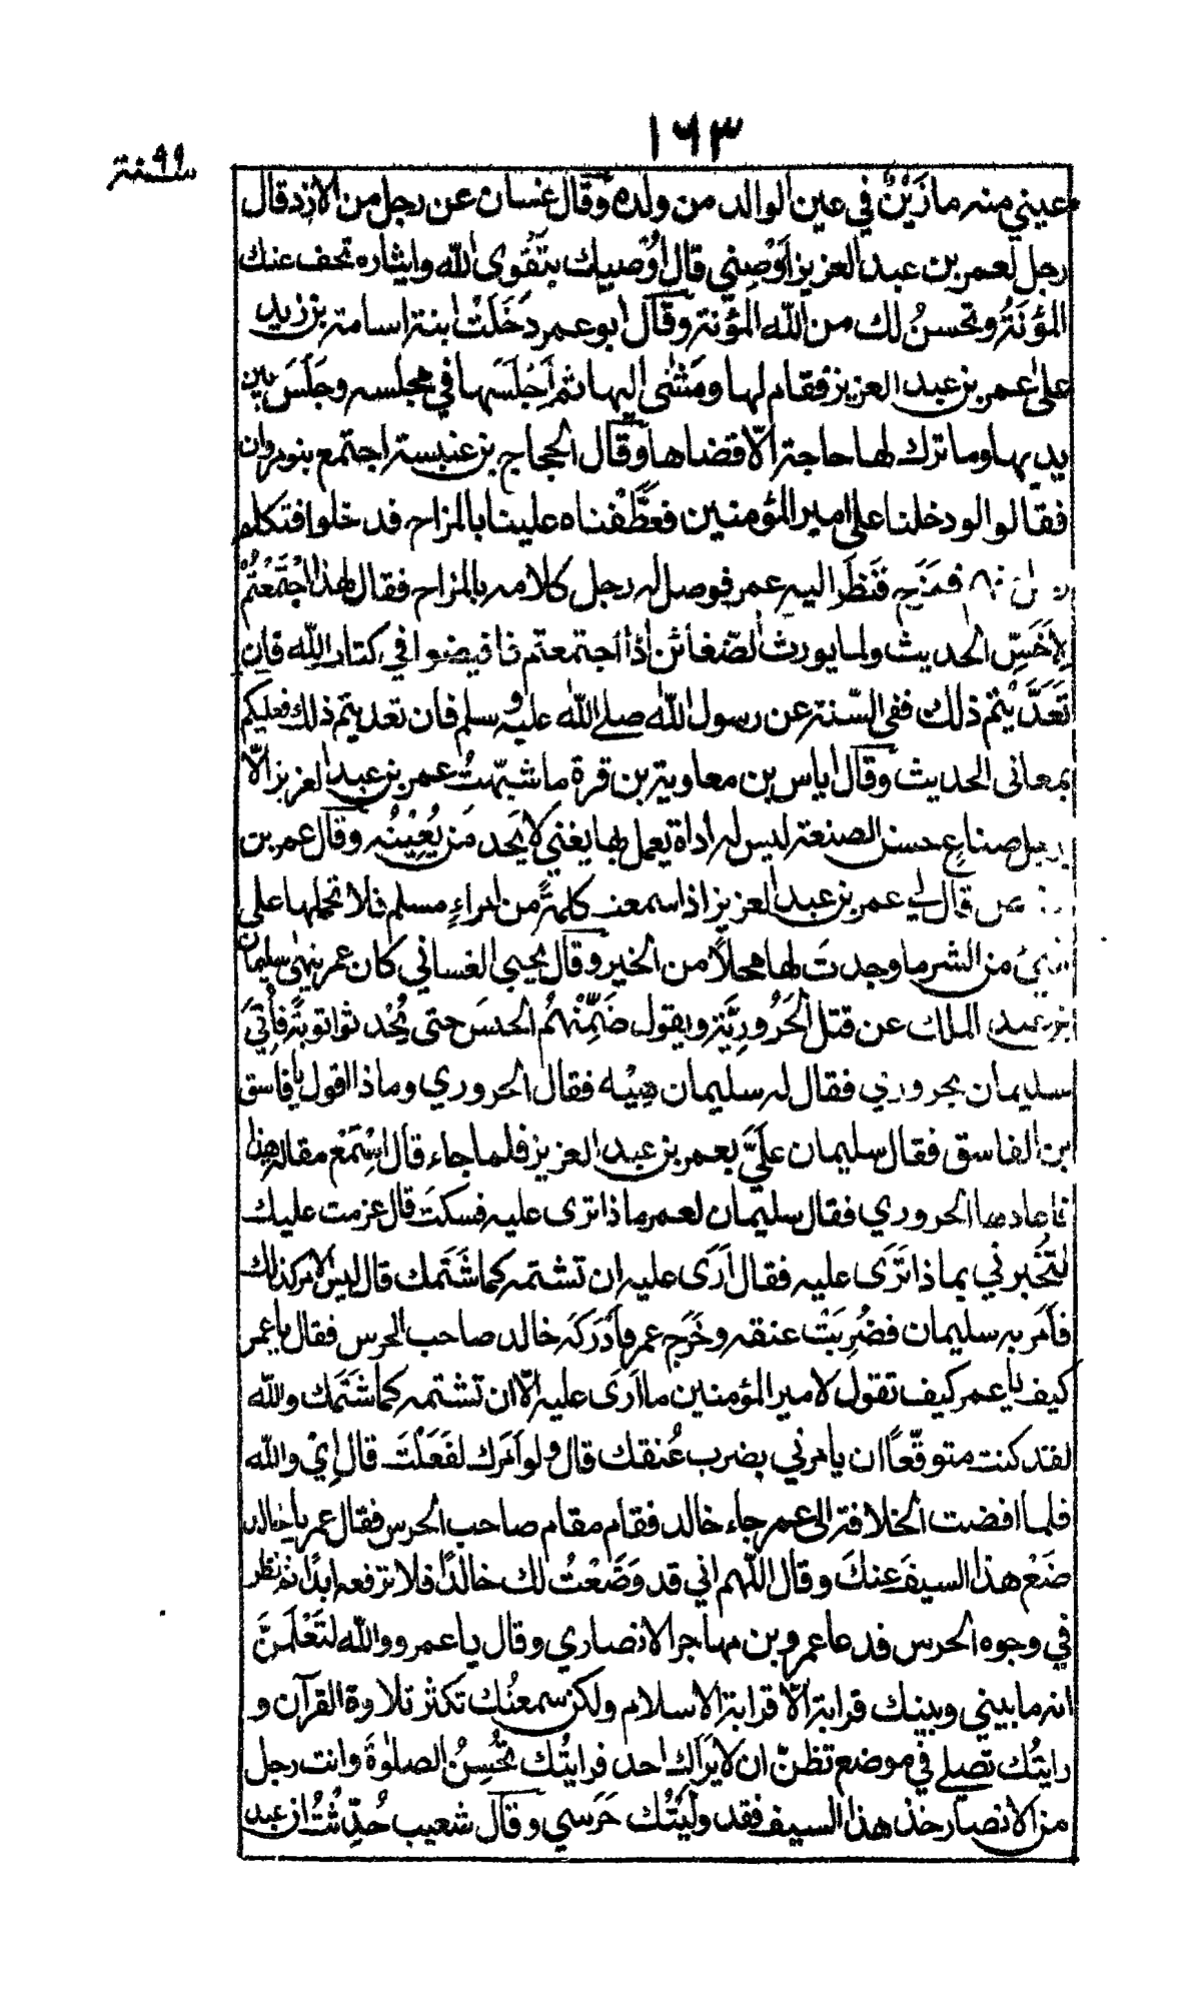 ١٦٣
سنة ٩٩
عيني منه ما زَيّنَ في عين الوالد من ولده وقال غسان عن رجل من الازد قال
رجل لعمر بن عبد العزيز اَوْصِني قال اُوْصيك بتَقْوى الله وايثاره تخف عنك
المؤنَةُ وتحسنُ لك من الله المؤنة وقال ابو عمر دَخَلَتْ ابنة اسامة بن زيد
على عمر بن عبد العزيز فقام لها ومَشٰى اليها ثم اَجْلَسَها في مجلسه وجَلَسَ بين
يديها وما ترك لها حاجة الّا قضاها وقال الحجاج بن عنبسة اجتمع بنو مروان
فقالوا لو دخلنا على امير المؤمنين فعطَّفْناه علينا بالمزاح فدخلوا فتكلم
فمَزَح فنَظَرَ اليه عمر فوصل له رجل كلامه بالمزاح فقال لهذا اجْتَمَعْتُمْ
لِاَخَسِّ الحديث ولما يورث الضّغائن اذا اجتمعتم فافيضوا في كتاب الله فان
تَعَدَّيْتم ذلك ففي السّنة عن رسول الله صلى الله عليه وسلم فان تعديتم ذلك فعليكم
بمعاني الحديث وقال اياس بن معاوية بن قرة ما شبّهتُ عمر بن عبد العزيز الّا
برجل صناعٍ حسن الصنعة ليس له اداة يعمل بها يعني لا يَجد مَن يُعِيْنُه وقال عمر بن
قال لي عمر بن عبد العزيز اذا سمعت كلمةً من امرءٍ مسلم فلا تحملها على
شيء من الشر ما وجدتَ لها محملًا من الخير وقال يحيى الغساني كان عمر ينهى سليمان
ابن عبد الملك عن قتل الحَرُوريَّة ويقول ضَمِّنْهُم الحبسَ حتى يُحْدثوا توبةً فأُتِيَ
سليمان بحروري فقال له سليمان هِيْه فقال الحروري وماذا اقول يا فاسق
ابن الفاسق فقال سليمان عَلَيَّ بعمر بن عبد العزيز فلما جاء قال اسْتَمِعْ مقالة هذا
فاعادها الحروري فقال سليمان لعمر ماذا ترى عليه فسكتَ قال عزمت عليك
لتُخْبرني بماذا تَرَى عليه فقال اَرَى عليه ان تشتمه كما شَتَمك قال ليس الامر كذلك
فاَمَر به سليمان فضُرِبَتْ عنقه وخَرَج عمر فاَدْرَكَه خالد صاحب الحرس فقال يا عمر
كيف يا عمر كيف تقول لامير المؤمنين ما اَرَى عليه الّا ان تشتمه كما شَتَمَك والله
لقد كنت متوقّعًا ان يامرني بضرب عُنقك قال ولو اَمَرك لفَعَلْتَ قال اِيْ والله
فلما افضت الخلافة الى عمر جاء خالد فقام مقام صاحب الحرس فقال عمر يا خالد
ضَعْ هذا السيفَ عنكَ وقال اللهم اني قد وَضَعْتُ لك خالدًا فلا ترفعه ابدًا ثم نظر
في وجوه الحرس فدعا عمرو بن مهاجر الانصاري وقال يا عمرو والله لتَعْلَمَنَّ
انه ما بيني وبينك قرابة الّا قرابة الاسلام ولكن سمعتُك تكثر تلاوة القرآن و
رايتُك تصلي في موضع تظنّ ان لا يَرَاك احد فرايتُك تُحْسِنُ الصلوٰةَ وانت رجل
من الانصار خذ هذا السيف فقد ولَّيتُك حَرَسي وقال شعيب حُدِّثْتُ ان عبد